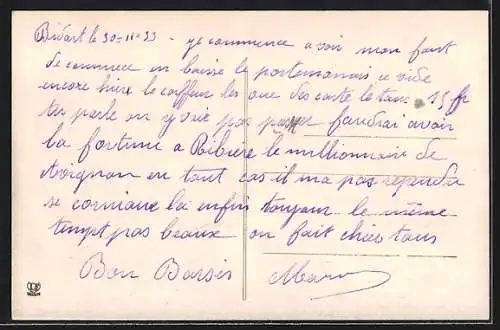 Bidart le 30-11-33 - je commence a voir mon fait
de commerce en baisse le portemonais ce vide
encore hiere le coiffeur les une des carte le taux 15 fr
ter parle on y voie pas passer faudrai avoir
la fortune a Ribière le millionnair de
Avignon en tout cas il ma pas repondu
se corniaux la enfin toujour le même
tempt pas beaux on fait chier tous
Bon Baisés Marc